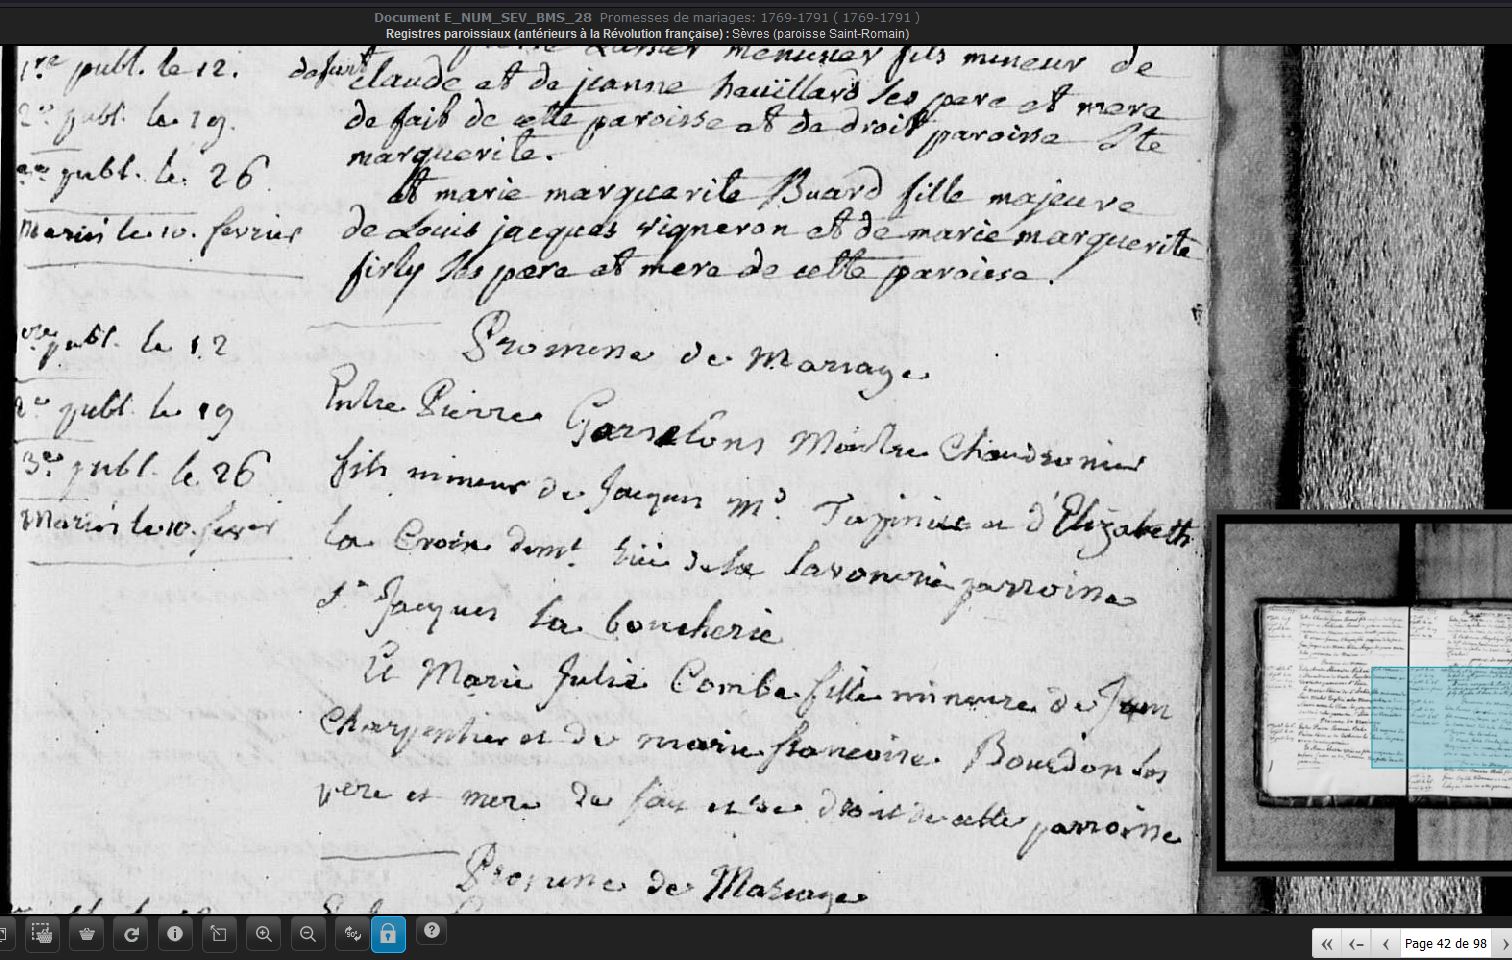 Document E_NUM_SEV_BMS_28 Promesses de mariages: 1769-1791 ( 1769-1791 )
Registres paroissiaux (antérieurs à la Révolution française) : Sèvres (paroisse Saint-Romain)
menuzier fils mineur de
1re publ. le 12. defunt Claude et de jeanne heuillard ses pere et mere
2e publ. le 19. de fait de cette paroisse et de droit paroisse Ste
marguerite.
publ. le 26
et marie marguerite Buard fille majeure
Mariés le 10. fevrier de Louis jacques vigneron et de marie marguerite
firly ses pere et mere de cette paroisse.
1re publ. le 12 Promesse de Mariage
2e publ. le 19 Entre Pierre Maitre Chaudronier
3e publ. le 26 fils mineur de Jacques Md. et d'Elizabeth
Mariés le 10. fevr la Croix demt. rüe de la parroisse
St Jacques la boucherie
Et Marie Julie Combe fille mineure de Jean
Charpentier et de marie francoise Bourdon ses
pere et mere de fait et de droit de cette parroisse
Promesse de Mariage
Page 42 de 98